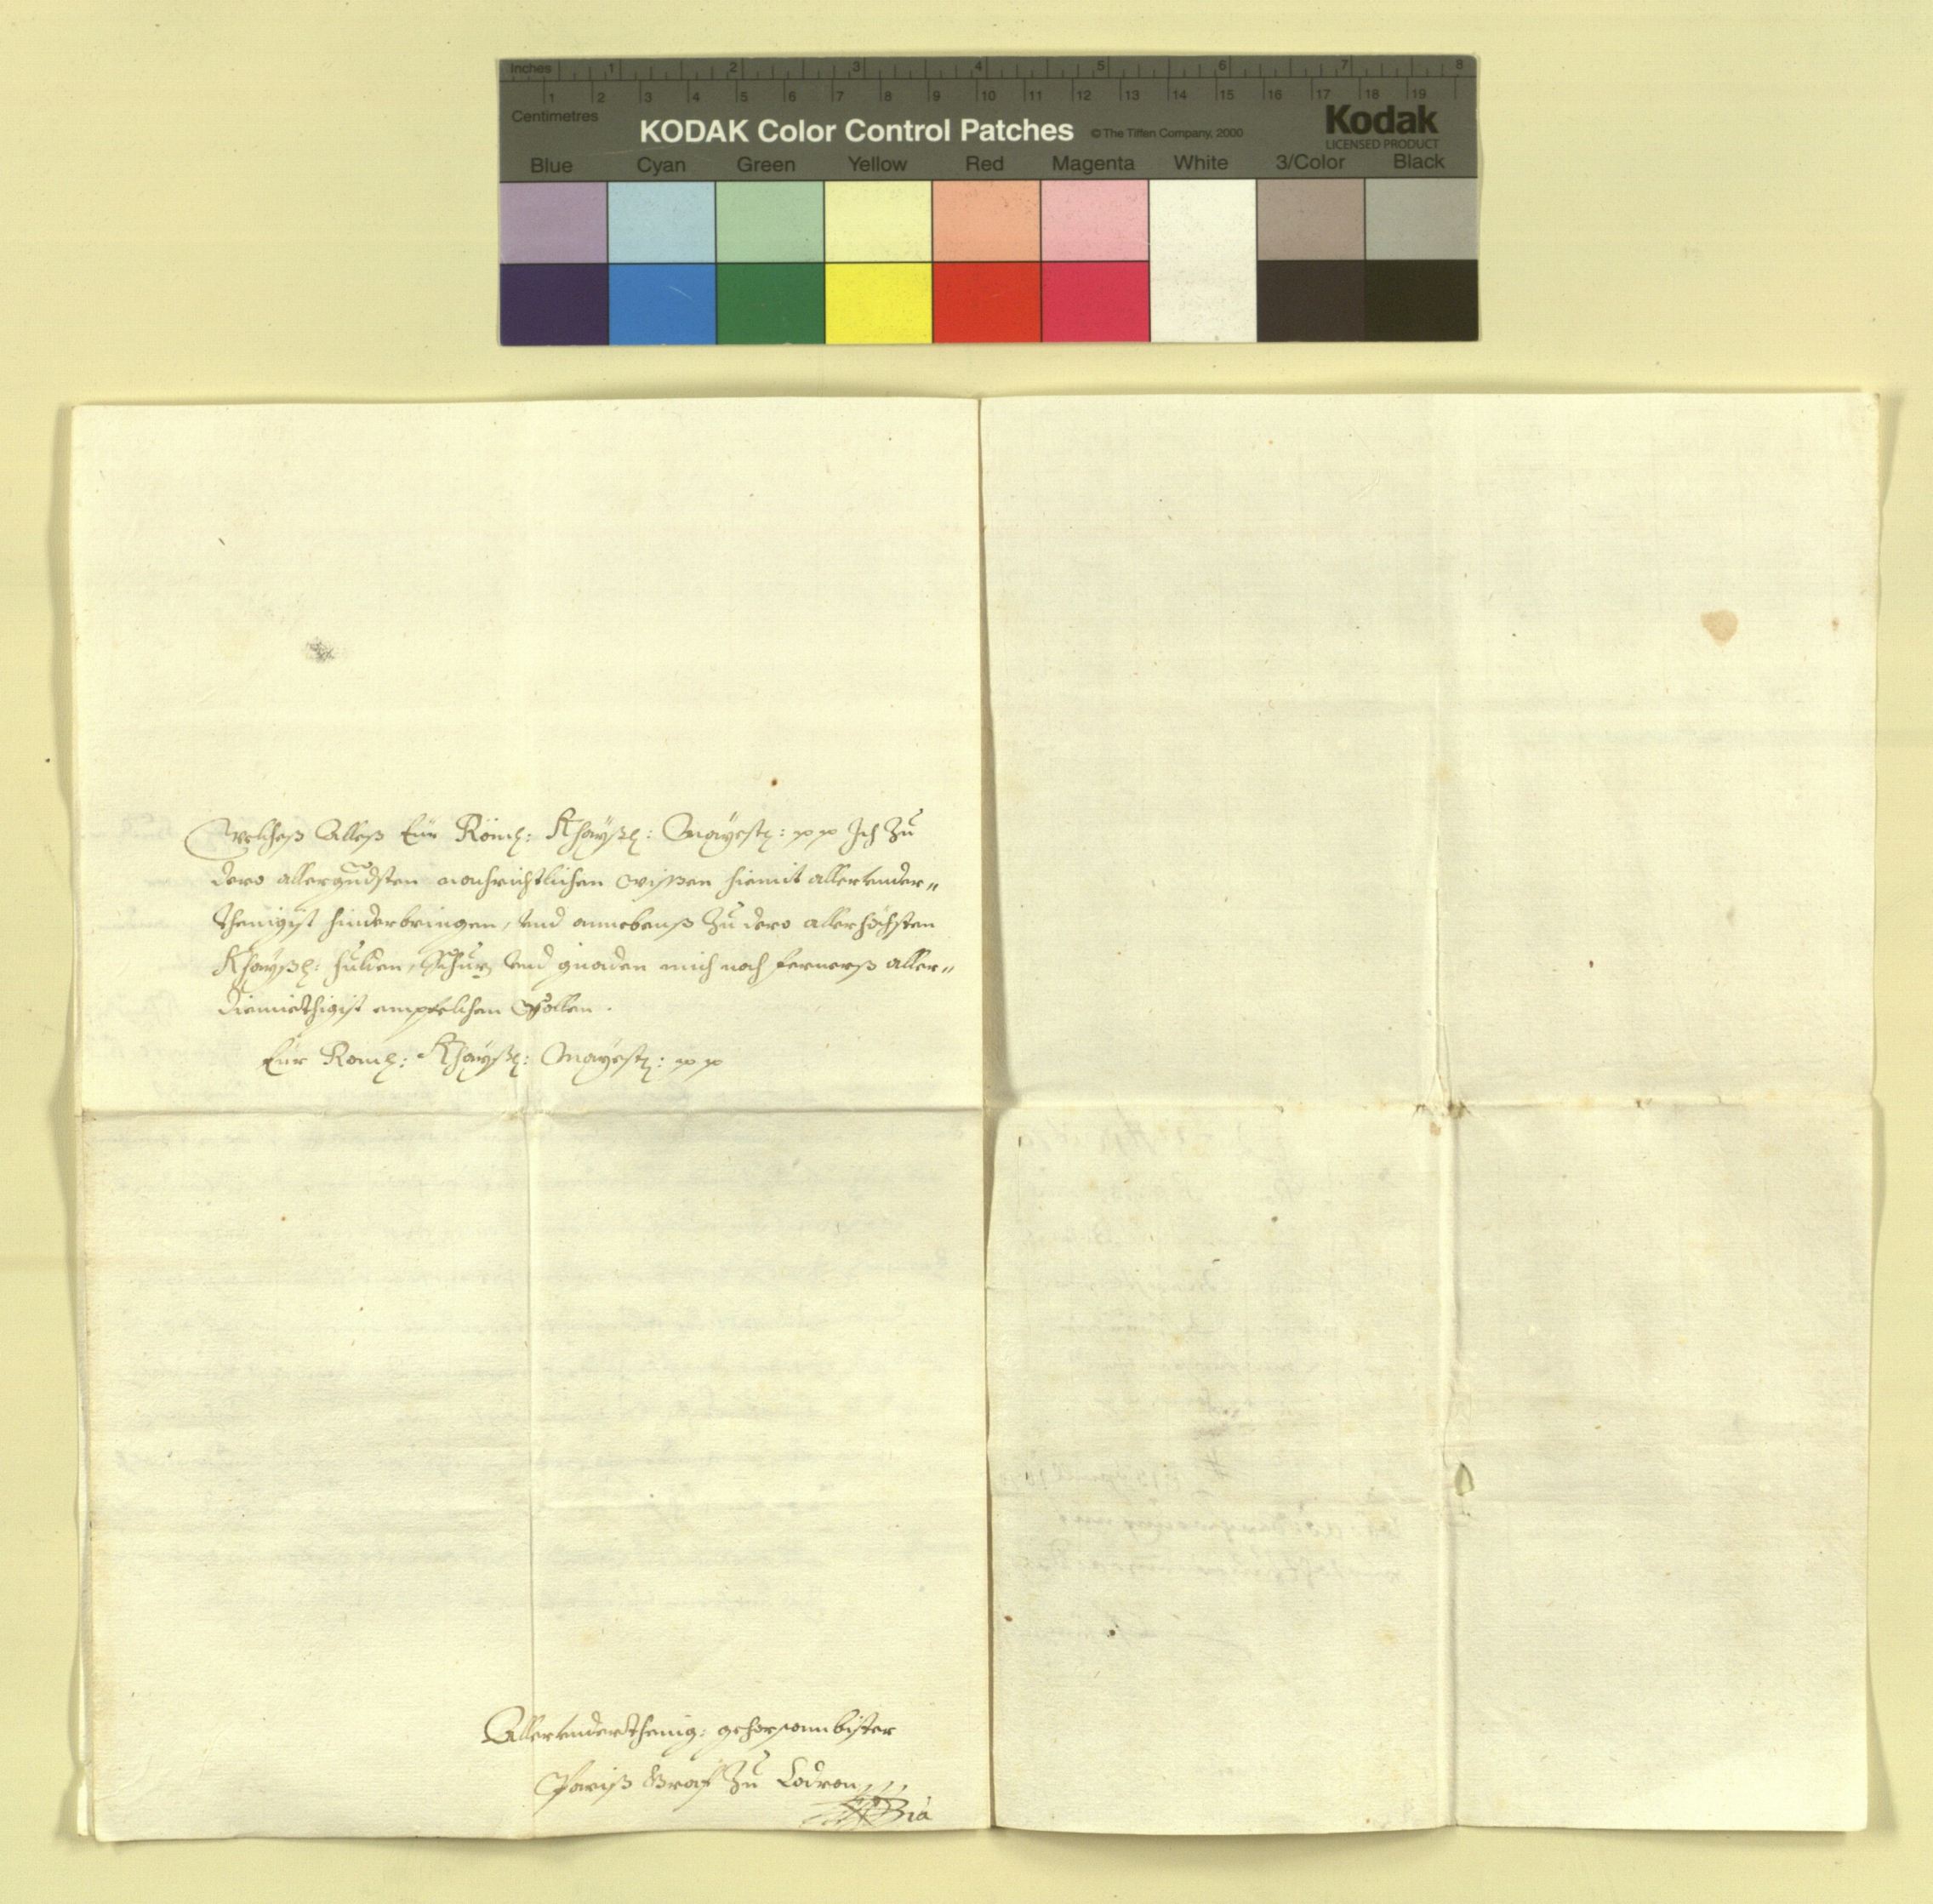 Inches 1 2 3 4 5 6 7 8
1 2 3 4 5 6 7 8 9 10 11 12 13 14 15 16 17 18 19
Centimetres
KODAK Color Control Patches © The Tiffen Company, 2000 Kodak
LICENSED PRODUCT
Blue Cyan Green Yellow Red Magenta White 3/Color Black
Welches Alles Eür Röml: Khaÿßl: Maÿestl: pp Ich Zu
dero allergndsten nachrichtlichen wißen hiemit allervnder„
thenigist hinderbringen, vnd annebenß Zu dero allerhöchsten
Khaÿßl: hulden, Schuz vnd gnaden mich noch fernerß aller„
diemiethigist empfelchen wollen.
Eür Röml: Khaÿßl: Maÿestl: pp
Allervnderthenig: gehorsambister
Pariß Graf Zu Lodron